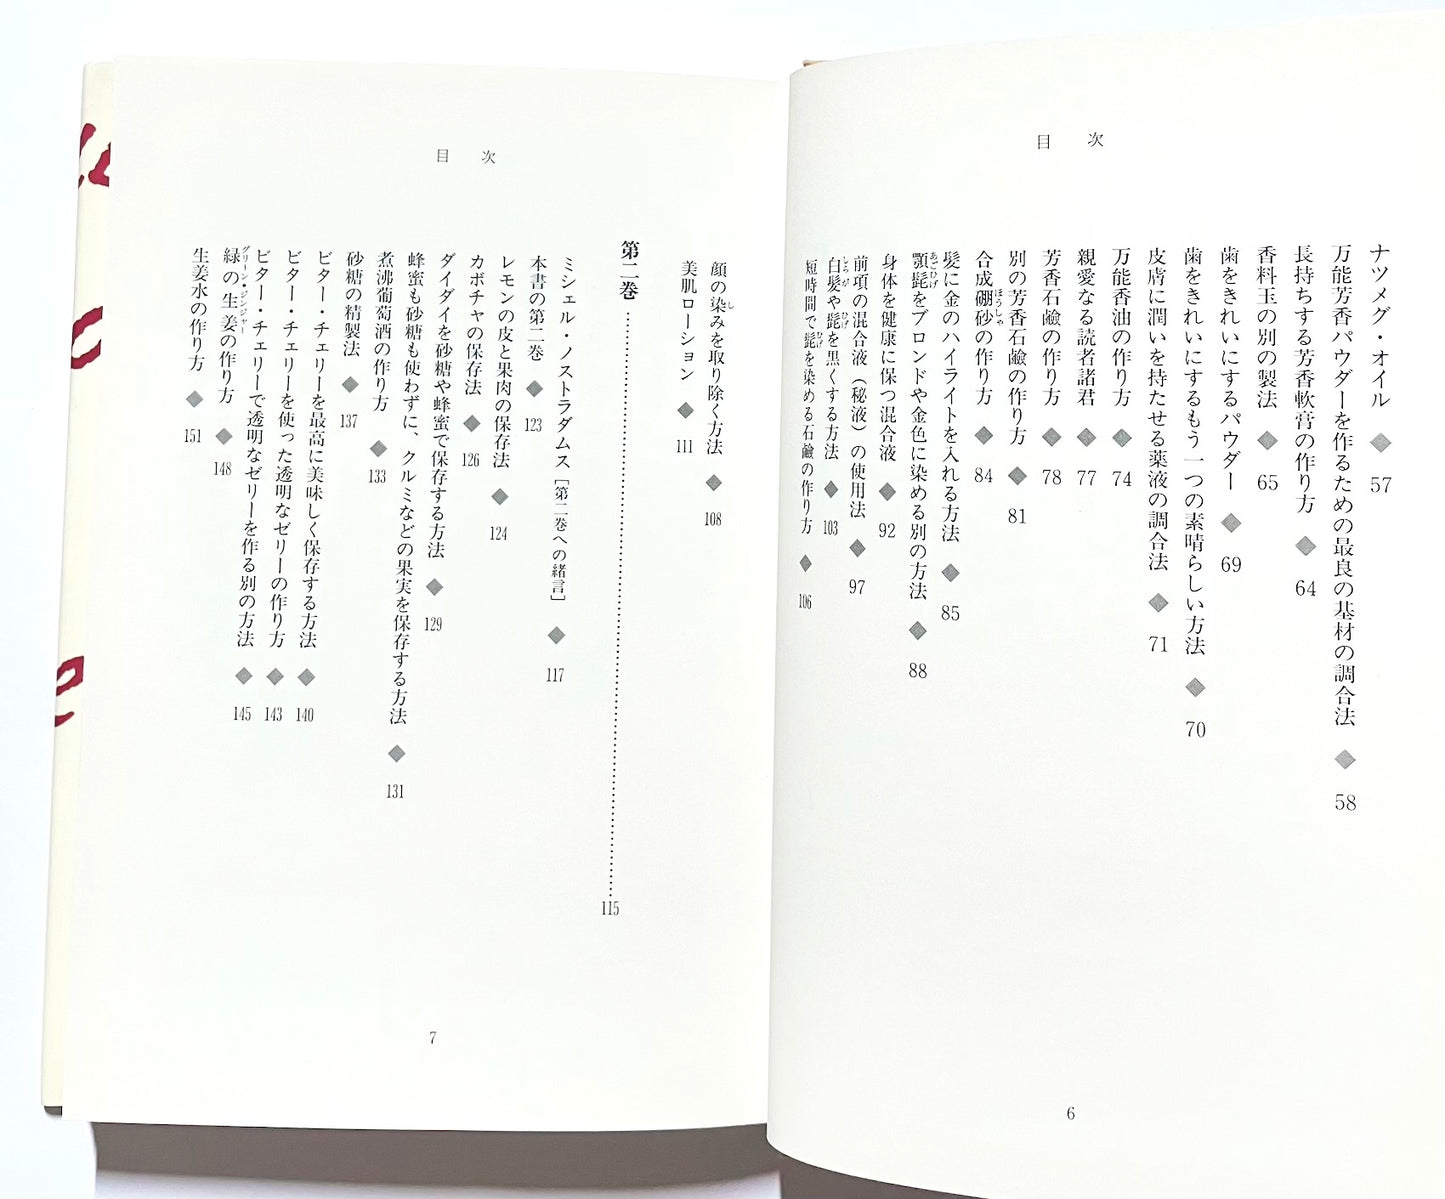 目次
ナツメグ・オイル ◆ 57
万能芳香パウダーを作るための最良の基材の調合法 ◆ 58
長持ちする芳香軟膏の作り方 ◆ 64
香料玉の別の製法 ◆ 65
歯をきれいにするパウダー ◆ 69
歯をきれいにするもう一つの素晴らしい方法 ◆ 70
皮膚に潤いを持たせる薬液の調合法 ◆ 71
万能香油の作り方 ◆ 74
親愛なる読者諸君 ◆ 77
芳香石鹼の作り方 ◆ 78
別の芳香石鹼の作り方 ◆ 81
合成硼砂の作り方 ◆ 84
ほうしゃ
髪に金のハイライトを入れる方法 ◆ 85
顎髭をブロンドや金色に染める別の方法 ◆ 88
あごひげ
身体を健康に保つ混合液 ◆ 92
前項の混合液（秘液）の使用法 ◆ 97
白髪や髭を黒くする方法 ◆ 103
しらが ひげ
短時間で髭を染める石鹼の作り方 ◆ 106
ひげ
6
目次
顔の染みを取り除く方法 ◆ 108
し
美肌ローション ◆ 111
第二巻 115
ミシェル・ノストラダムス［第二巻への緒言］ ◆ 117
本書の第二巻 ◆ 123
レモンの皮と果肉の保存法 ◆ 124
カボチャの保存法 ◆ 126
ダイダイを砂糖や蜂蜜で保存する方法 ◆ 129
蜂蜜も砂糖も使わずに、クルミなどの果実を保存する方法 ◆ 131
煮沸葡萄酒の作り方 ◆ 133
砂糖の精製法 ◆ 137
ビター・チェリーを最高に美味しく保存する方法 ◆ 140
ビター・チェリーを使った透明なゼリーの作り方 ◆ 143
ビター・チェリーで透明なゼリーを作る別の方法 ◆ 145
緑の生姜の作り方 ◆ 148
グリーン・ジンジャー
生姜水の作り方 ◆ 151
7